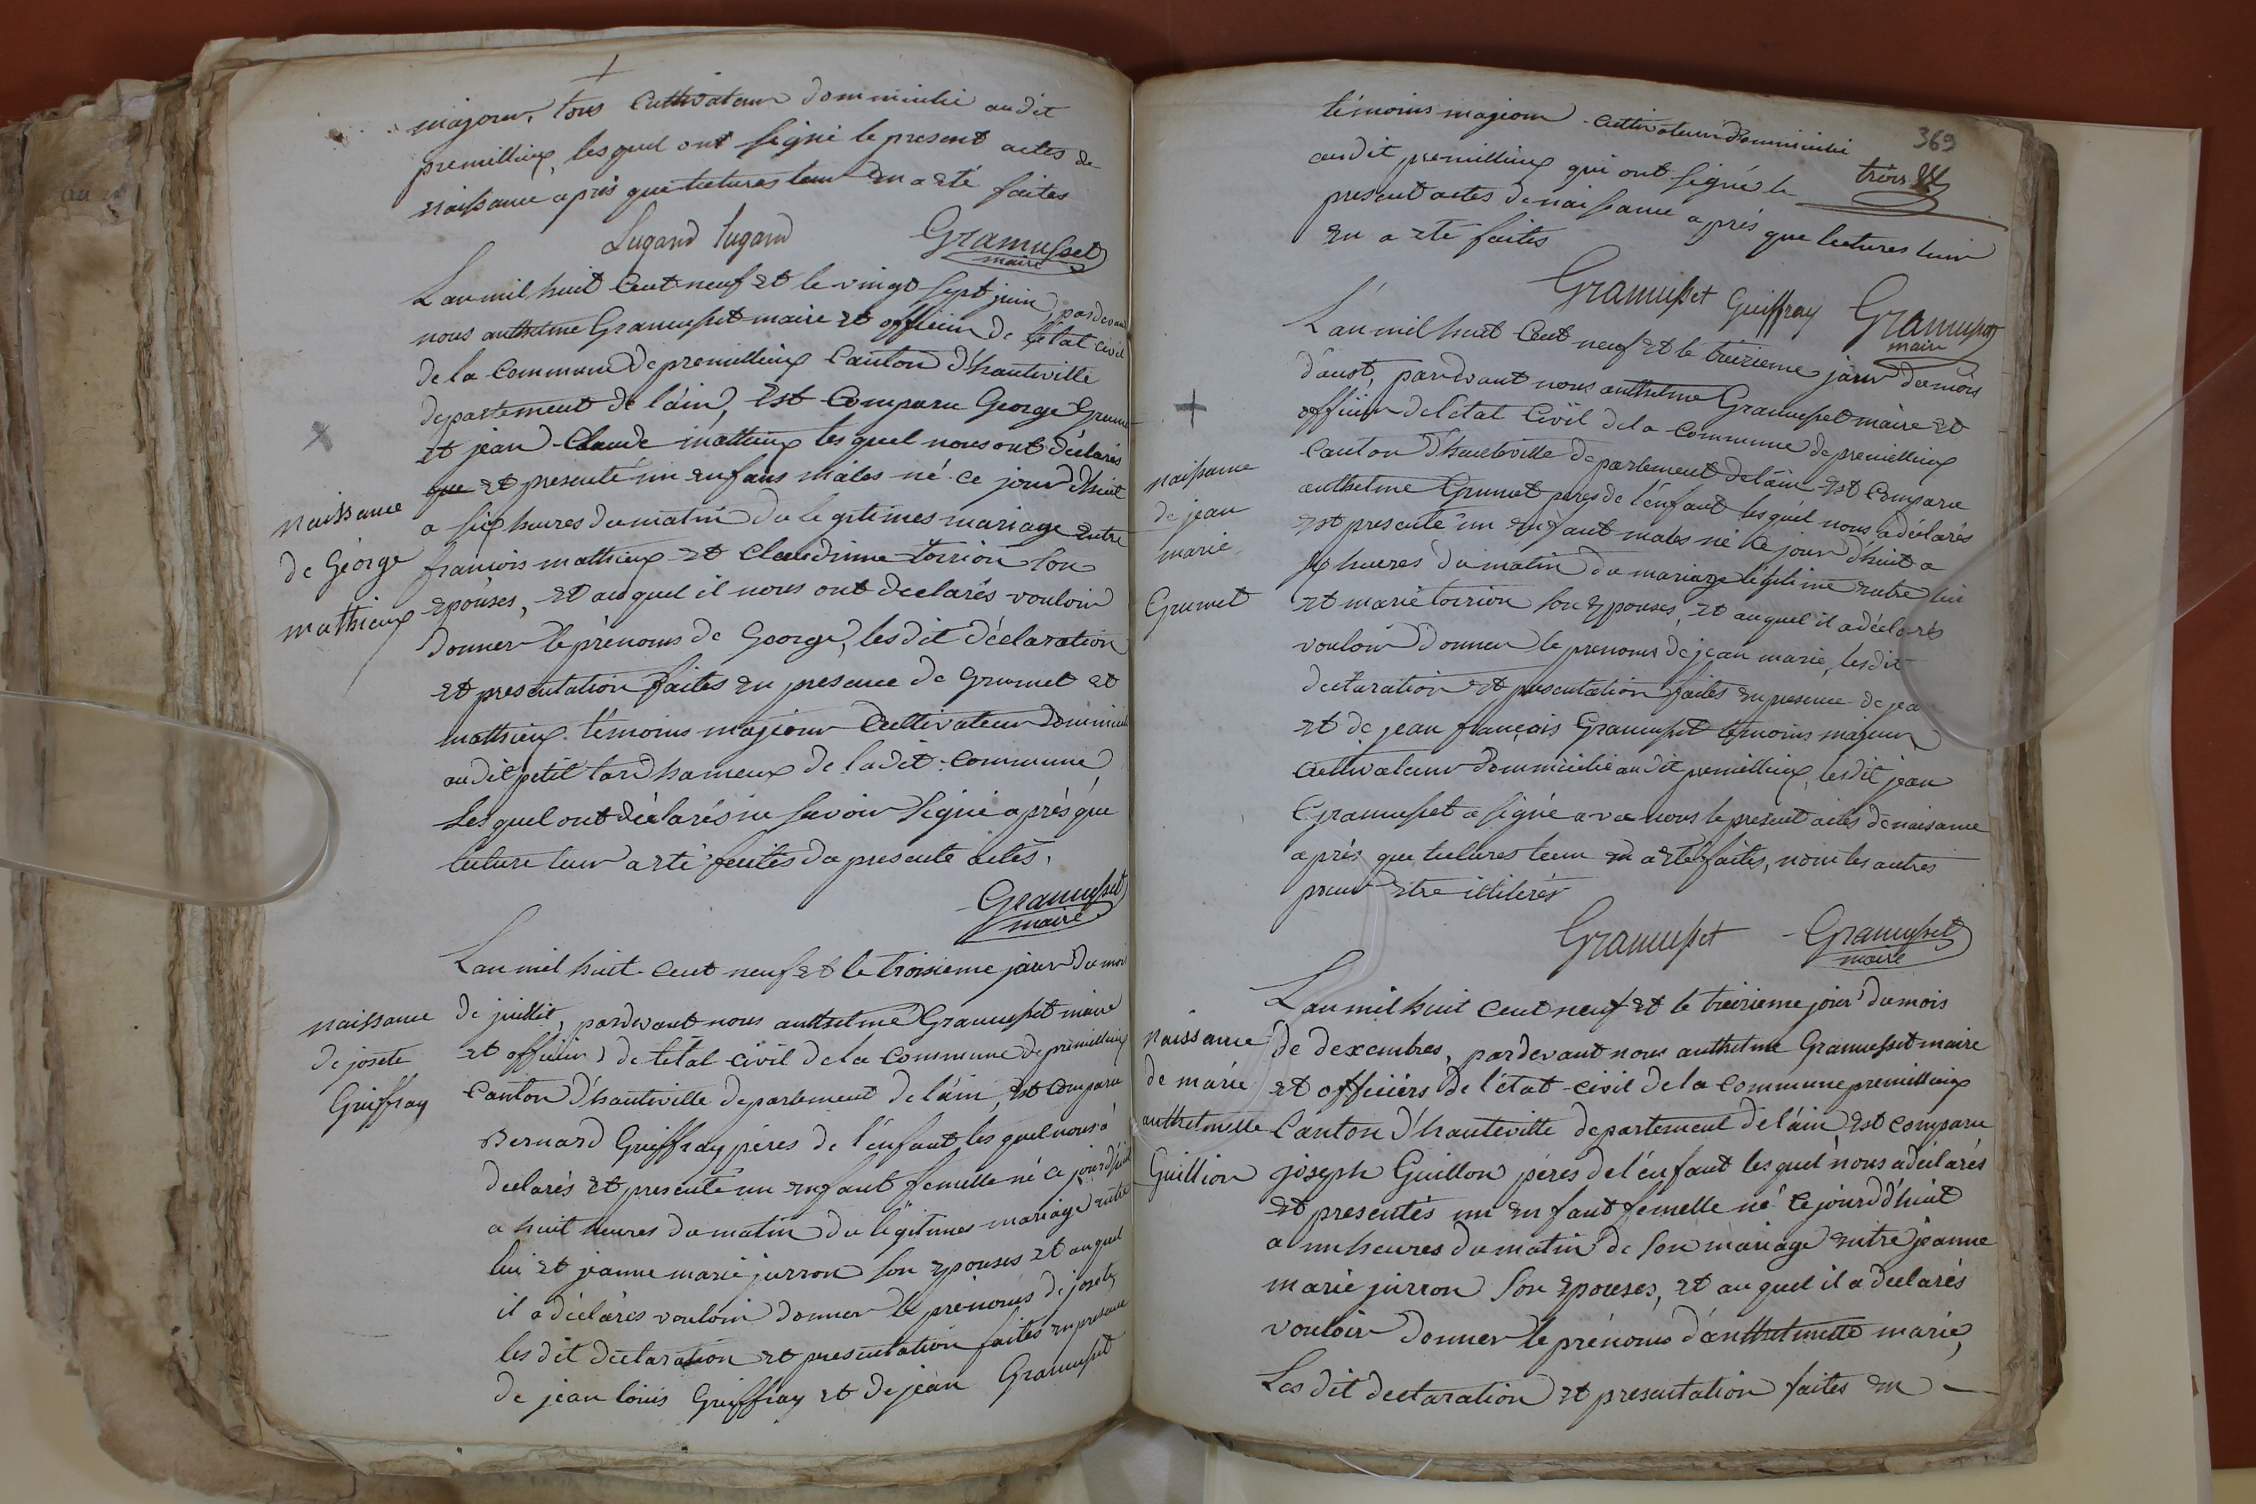 majeur, tous Cultivateur dommicilié audit
premillieux, les quel ont signé le present actes de
naissance après que lectures leur en a été faites
Lugand lugand Gramusset
maire
L'an mil huit Cent neuf et le vingt sept juin, pardevant
nous anthelme Gramusset maire et officier de l'état civil
de la Commune de premillieux Canton d'hauteville
departement de l'ain, est Comparu George Grumet
et jean-Claude mathieux les quel nous ont déclarés
que et presenté un enfans males né ce jour d'huit
a six heures du matin du legitimes mariage entre
naissance
de George
mathieux
francois mathieux et Claudinne toirion son
epouses, et auquel il nous ont declarés vouloir
donner le prénoms de George, les dit déclaration
et presentation faites en presence de Grumet et
mathieux témoins majeur Cultivateur dommicilié
audit petit tard hameux de ladit Commune
Les quel ont déclarés ne savoir signé après que
lecture leur a été faites du presente actes.
Gramusset
maire
L'an mil huit Cent neuf et le troisieme jour du moi
naissance
de josete
Guiffray
de juillit, pardevant nous anthelme Gramusset maire
et officier de létat civil de la Commune de premillieux
Canton d'hauteville departement de l'ain, est Comparu
Bernard Guiffray péres de l'enfant les quel nous a
declarés et presenté un enfant femelle né ce jour d'huit
a huit heures du matin du légitimes mariage entre
lui et jeanne marie jurron son epouses et auquel
il a déclarés vouloir donner le prénoms de josete,
les dit declaration et presentation faites en presence
de jean louis Guiffray et de jean Gramusset
369
trois
témoins majeur Cultivateur dommicilié
audit premillieux qui ont signé le
present actes de naissance après que lectures leur
en a été faites
Gramusset Guiffray Gramusset
maire
L'an mil huit Cent neuf et le treizieme jour du mois
d'aust, pardevant nous anthelme Gramusset maire et
officier de l'état Civil de la Commune de premillieux
Canton d'hauteville departement de l'ain est Comparu
naissance
de jean
marie
Grumet
anthelme Grumet peres de l'enfant les quel nous a déclarés
est presenté un enfant males né ce jour d'huit a
six heures du matin du mariage légitime entre lui
et marie toirion son epouses, et auquel il a déclarés
vouloir donner le prenoms de jean marie, les dit
declaration et presentation faites en presence de jea
et de jean françois Gramusset témoins majeur
Cultivateur dommicilié audit premillieux, les dit jean
Gramusset a signé avec nous le present actes de naisance
après que lectures leur en a été faites, nom les autres
pour etre ilitérés
Gramusset Gramusset
maire
L'an mil huit Cent neuf et le treizieme jour du mois
naissance
de marie
anthelmette
Guillion
de dexembres, pardevant nous anthelme Gramusset maire
et officiérs de l'état civil de la Commune premillieux
Canton d'hauteville departement de l'ain est comparu
joseph Guillon péres de l'énfant les quel nous a déclarés
et presentés un enfant femelle né ce jourd d'huit
a un heures du matin de son mariage entre jeanne
marie jurron son epouses, et au quel il a declarés
vouloir donner le prénoms d'anthelmette marie,
Les dit declaration et presentation faites en